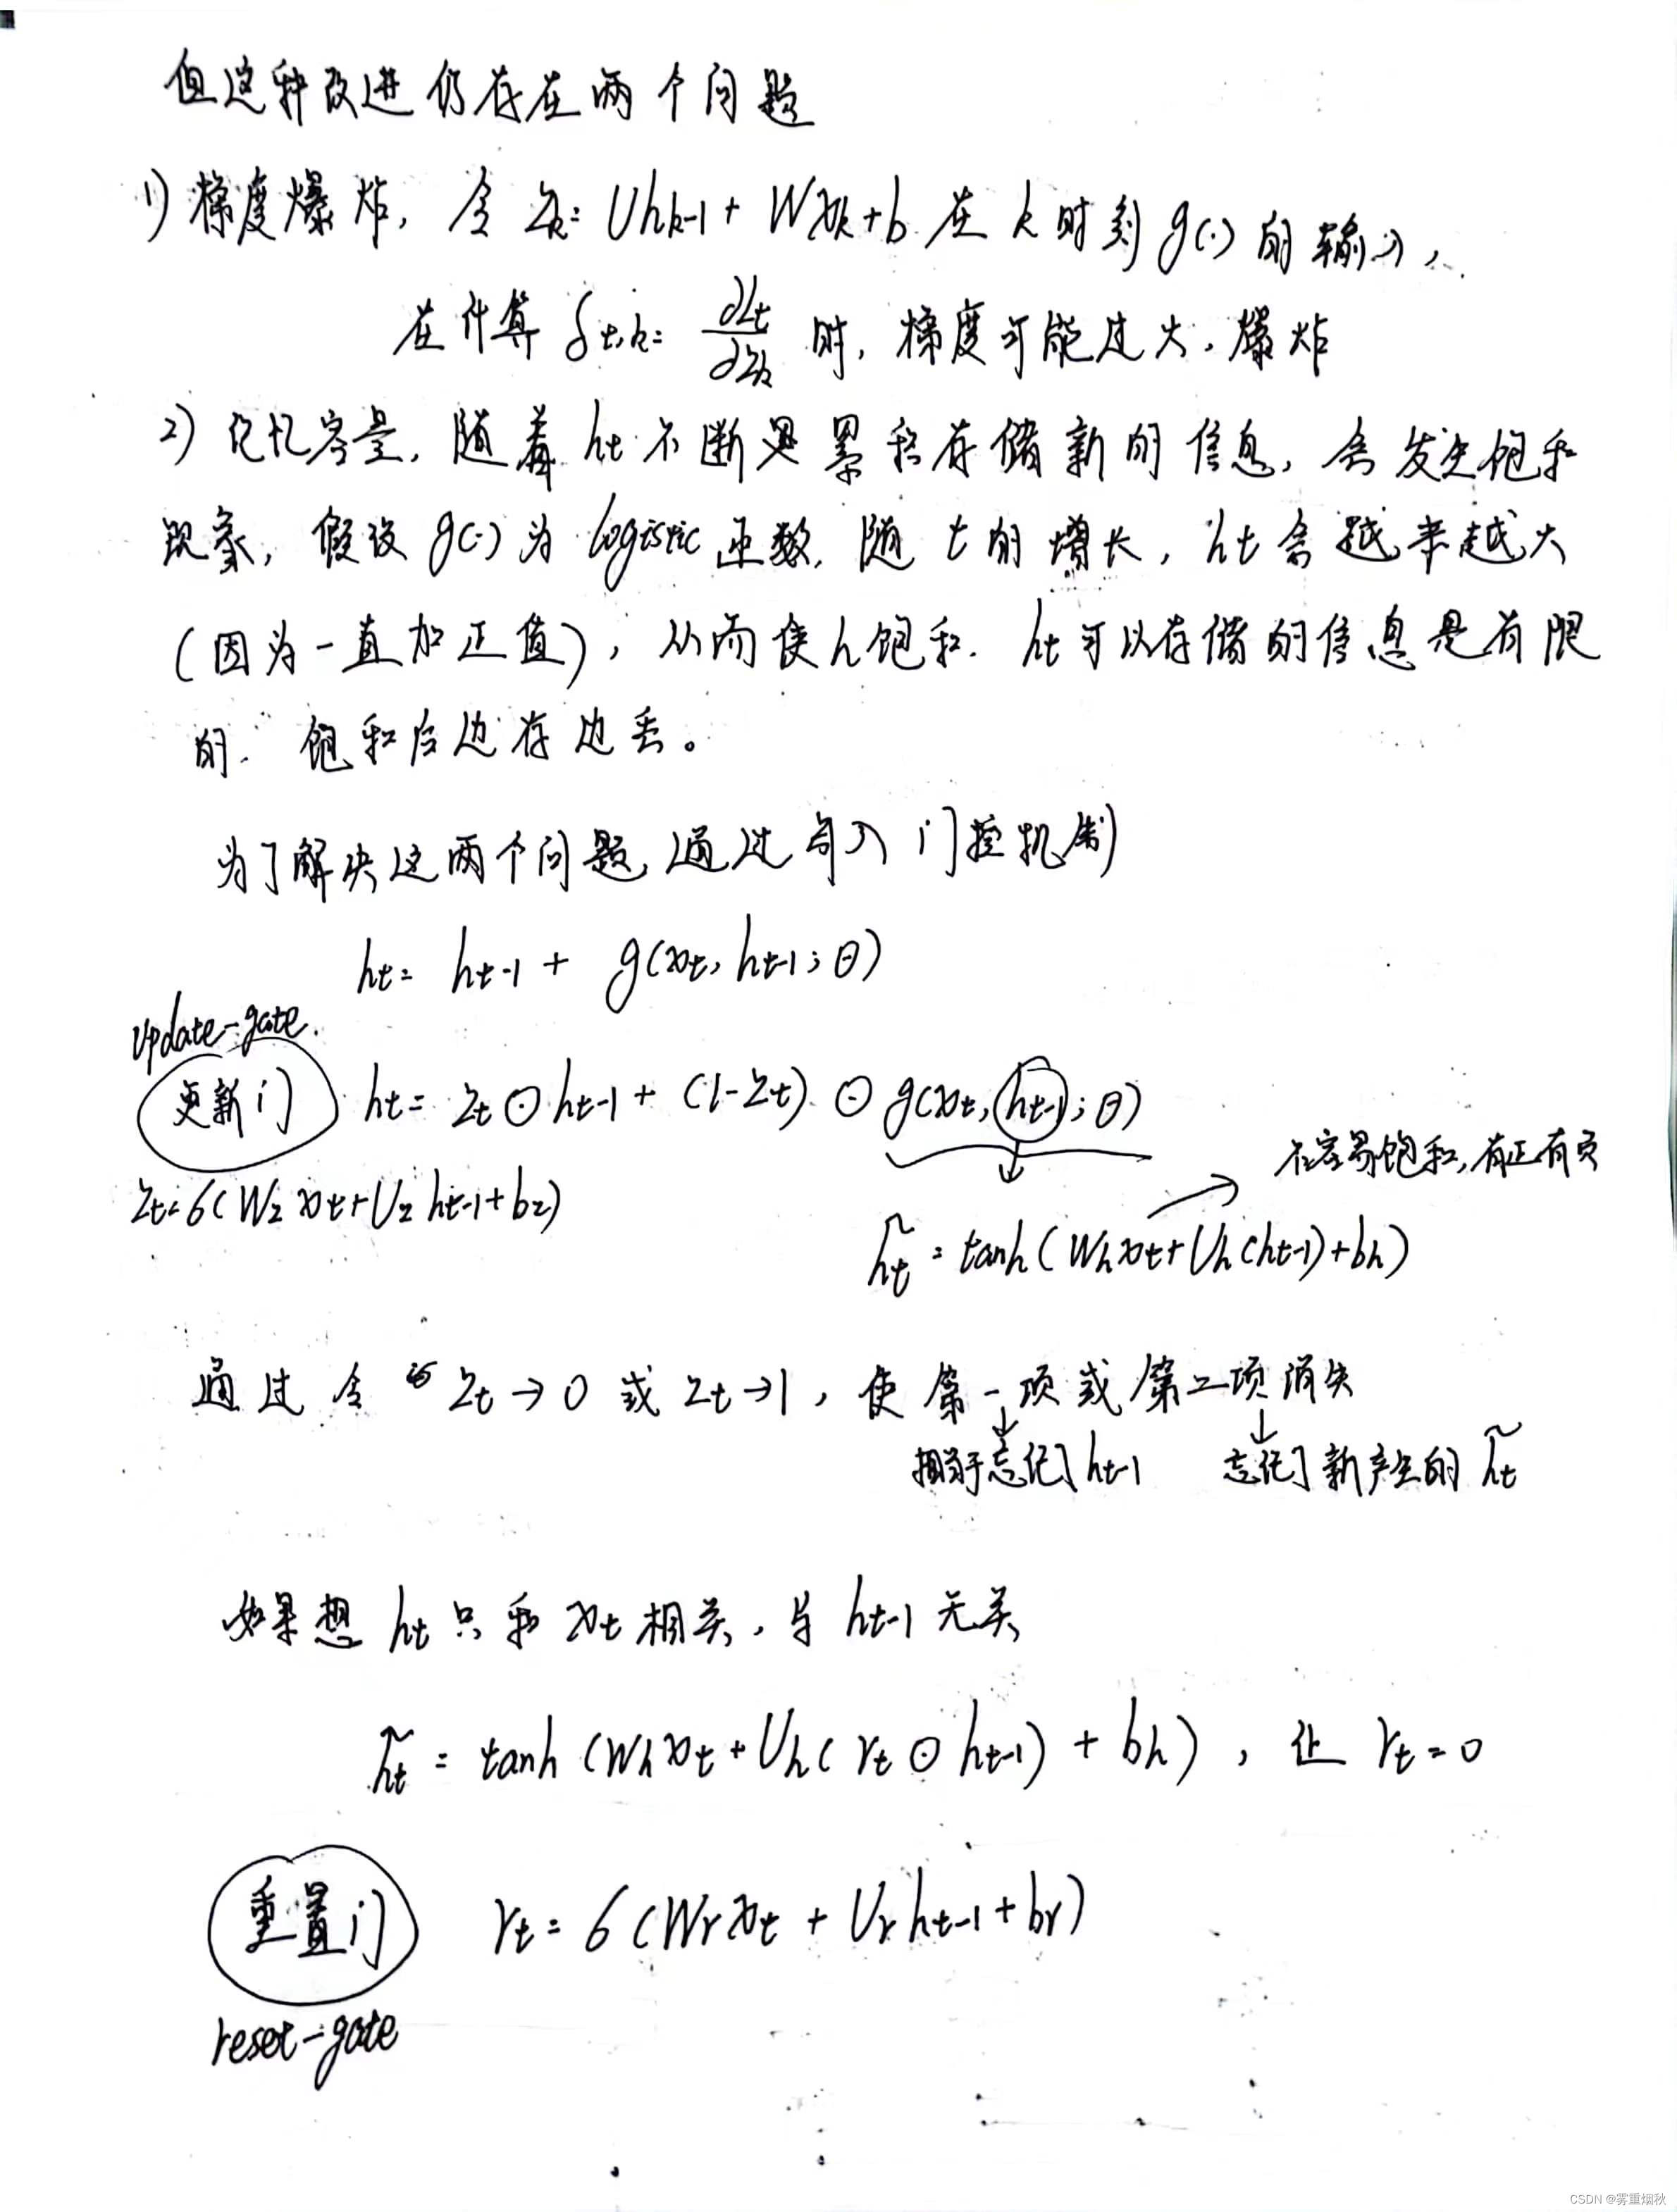 但这种改进仍存在两个问题
1) 梯度爆炸, 令 Zk = Uhk-1 + Wxk + b 在 k 时刻 g(·) 的输入,
在计算 δt,k = ∂Lt/∂Zk 时, 梯度可能过大, 爆炸
2) 记忆容量, 随着 ht 不断累积存储新的信息, 会发生饱和
现象, 假设 g(·) 为 logistic 函数, 随 t 的增长, ht 会越来越大
(因为一直加正值), 从而使 h 饱和. ht 可以存储的信息是有限
的. 饱和后边存边丢。
为了解决这两个问题, 通过引入门控机制
ht = ht-1 + g(xt, ht-1; θ)
update-gate.
更新门 ht = Zt ⊙ ht-1 + (1-Zt) ⊙ g(xt, ht-1; θ)
不容易饱和, 有正有负
Zt = σ(Wz xt + Uz ht-1 + bz)
h̃t = tanh(Wh xt + Uh(ht-1) + bh)
通过令 Zt → 0 或 Zt → 1, 使第一项或第二项消失
相当于忘记了 ht-1 忘记了新产生的 h̃t
如果想 ht 只和 xt 相关, 与 ht-1 无关
h̃t = tanh(Wh xt + Uh(rt ⊙ ht-1) + bh), 让 rt = 0
重置门 rt = σ(Wr xt + Ur ht-1 + br)
reset-gate
CSDN @雾重烟秋